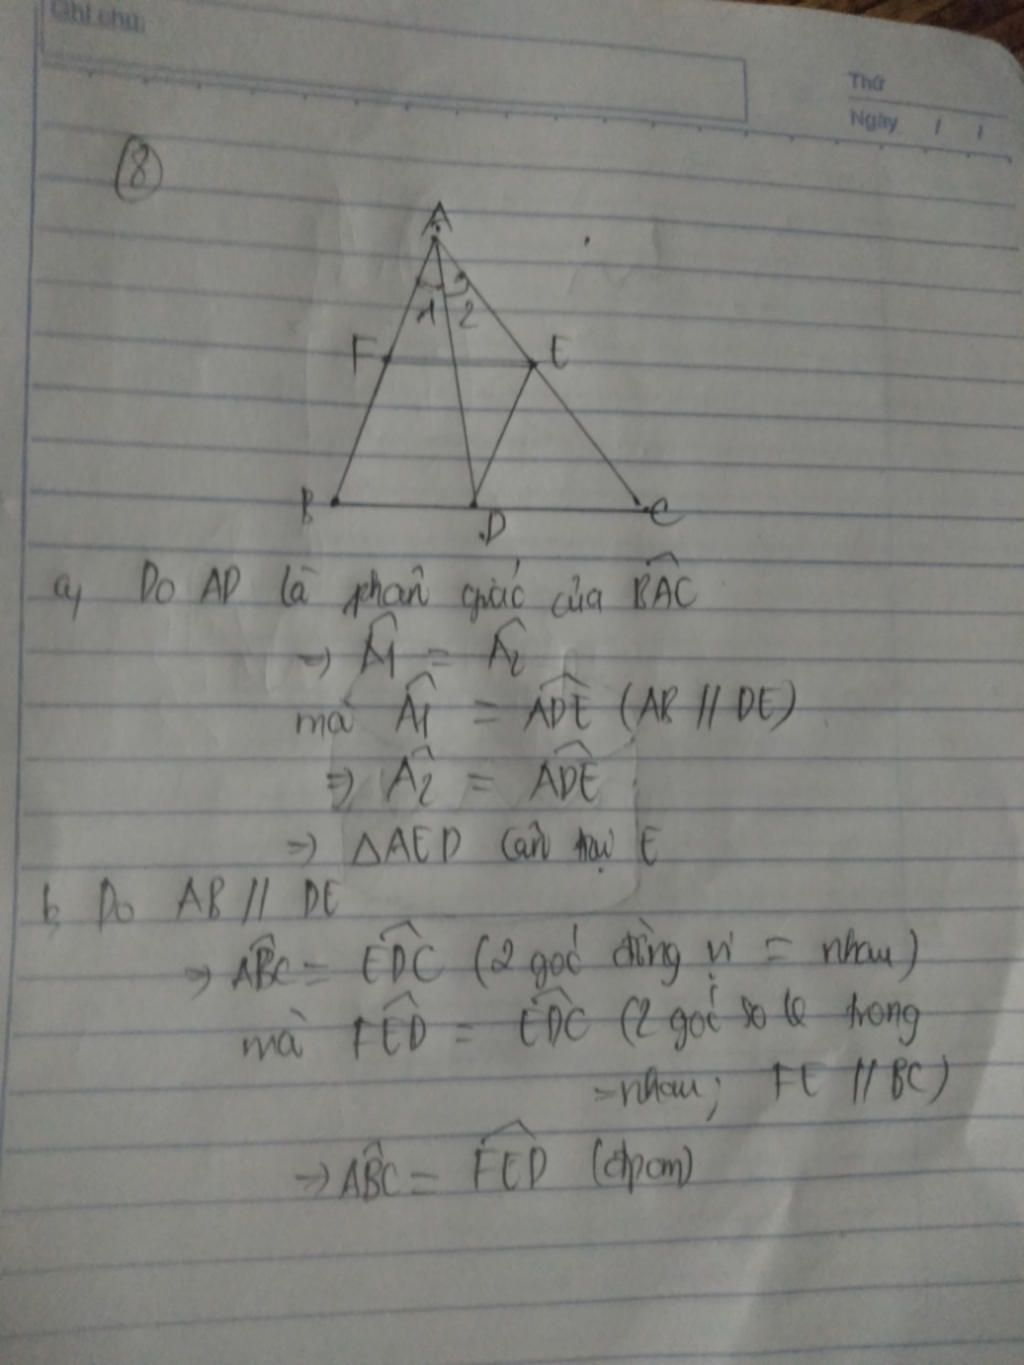 Ghi chú:
Thứ
Ngày / /
8
A
1 2
F E
B D C
a, Do AD là phân giác của BAC
=> A1 = A2
mà A1 = ADE (AB // DE)
=> A2 = ADE
=> ΔAED cân tại E
b, Do AB // DE
=> ABC = EDC (2 góc đồng vị = nhau)
mà FED = EDC (2 góc so le trong
= nhau; FE // BC)
=> ABC = FED (đpcm)